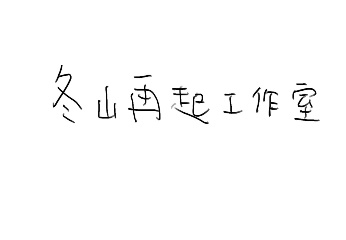 冬山再起工作室